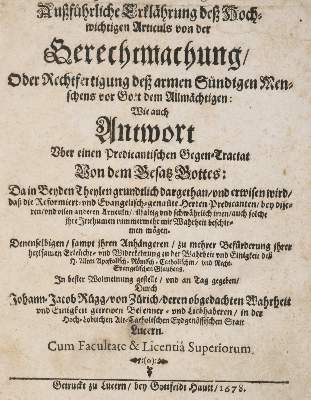 Außführliche Erklährung deß Hoch-
wichtigen Articuls von der
Gerechtmachung/
Oder Rechtfertigung deß armen Sündigen Men-
schens vor Gott dem Allmächtigen:
Wie auch
Antwort
Vber einen Predicantischen Gegen-Tractat
Von dem Gesatz Gottes:
Da in Beyden Theylen grundtlich dargethan/ und erwisen wird/
daß die Reformiert- und Evangelisch-genante Herren Predicanten/ bey disen/
und vilen anderen Articuln/ und schwährlich irren/ auch solche
ihre Irrthumen nimmermehr mit Wahrheit beschir-
men mögen.
Denenselbigen/ sampt ihren Anhängeren/ zu mehrer Beförderung ihrer
heylsamen und in der Wahrheit und Einigkeit deß
H. Uhralten Apostolisch- Römisch- Catholischen/ und Recht-
Evangelischen Glaubens.
In bester Wolmeinung gestellt/ und an Tag gegeben/
Durch
Johann-Jacob Rüegg/ von Zürich/ deren obgedachten Wahrheit
und Einigkeit getrewen Bekenner- und Liebhaberen/ in der
Hoch-Loblichen Alt-Catholischen Eydgenössischen Statt
Lucern.
Cum Facultate & Licentiâ Superiorum.
Getruckt zu Lucern/ bey Gottfridt Hautt/ 1678.